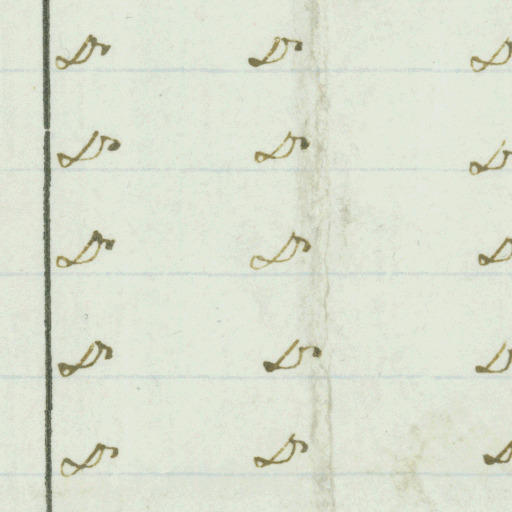 Do Do Do
Do Do Do
Do Do Do
Do Do Do
Do Do Do